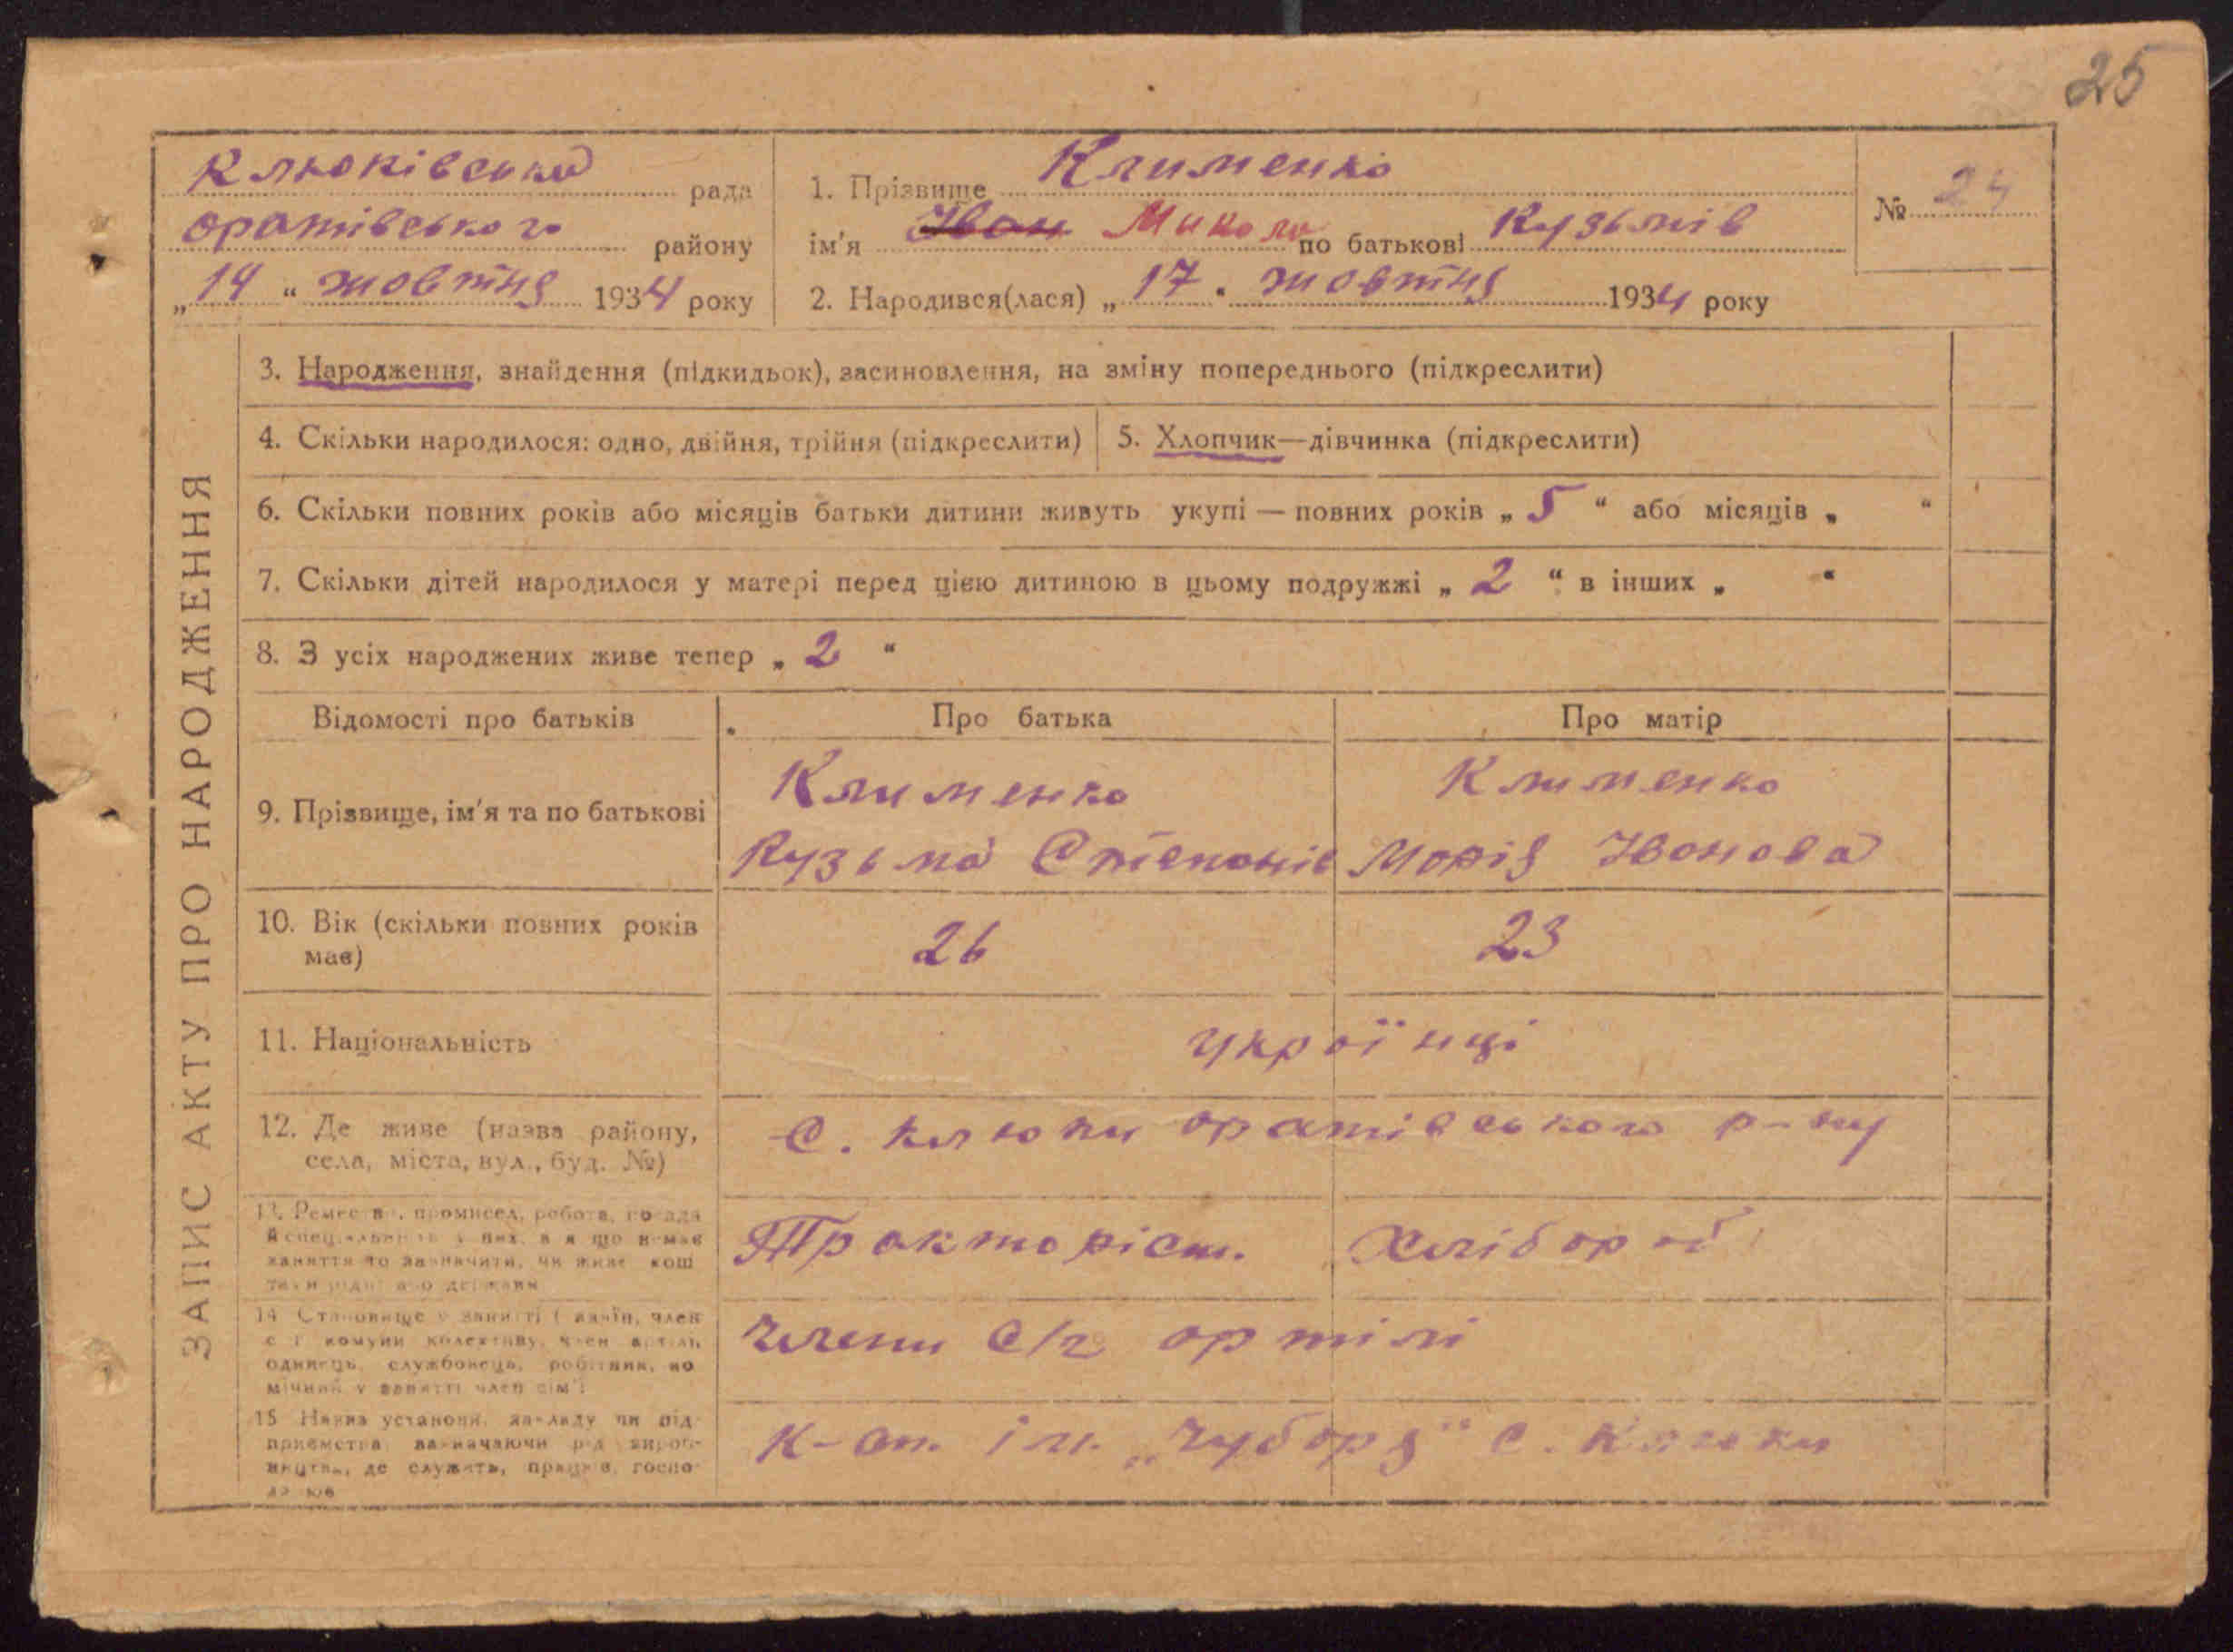 25
Клюківська рада
оратівського району
„14“ жовтня 1934 року
1. Прізвище Клименко
ім'я Іван Микола по батькові Кузьмів
2. Народився(лася) „17“ жовтня 1934 року
№ 24
ЗАПИС АКТУ ПРО НАРОДЖЕННЯ
3. Народження, знайдення (підкидьок), засиновлення, на зміну попереднього (підкреслити)
4. Скільки народилося: одно, двійня, трійня (підкреслити)
5. Хлопчик—дівчинка (підкреслити)
6. Скільки повних років або місяців батьки дитини живуть укупі — повних років „ 5 “ або місяців „ “
7. Скільки дітей народилося у матері перед цією дитиною в цьому подружжі „ 2 “ в інших „ “
8. З усіх народжених живе тепер „ 2 “
Відомості про батьків
Про батька
Про матір
9. Прізвище, ім'я та по батькові
Клименко
Кузьма Степанів
Клименко
Марія Іванова
10. Вік (скільки повних років
має)
26
23
11. Національність
українці
12. Де живе (назва району,
села, міста, вул., буд. №)
с. Клюки оратівського р-ну
13. Ремество, промисел, робота, посада
й спеціальність у них, а якщо немає
заняття то зазначити, чи живе кош
тами рідні або держави
Тракторіст.
Хлібороб
14 Становище в занятті (хазяїн, член
с г комуни колективу, член артіль
одинець, службовець, робітник, по
мічний у занятті член сім'ї
члени с/г артілі
15 Назва установи, закладу чи під-
приємства зазначаючи рід вироб-
ництва, де служить, працює, госпо-
дарює
К-сп. ім. „Чубаря“ с. Клюки